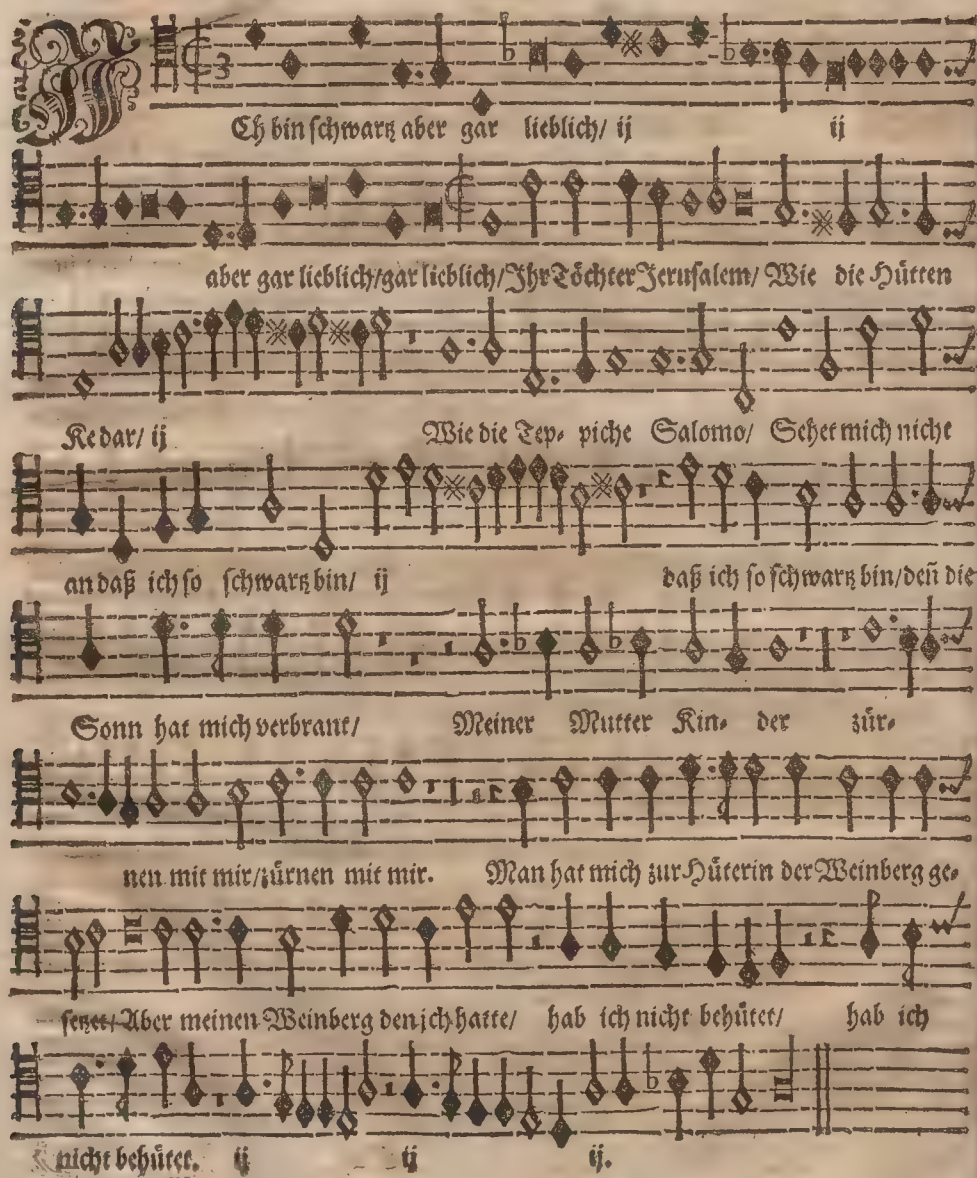 ICh bin schwartz aber gar lieblich/ ij ij
aber gar lieblich/gar lieblich/Ihr Töchter Jerusalem/ Wie die Hütten
Kedar/ ij Wie die Tep- piche Salomo/ Sehet mich nicht
an daß ich so schwartz bin/ ij daß ich so schwartz bin/den̄ die
Sonn hat mich verbrant/ Meiner Mutter Kin- der zür-
nen mit mir/zürnen mit mir. Man hat mich zur Hüterin der Weinberg ge-
setzet/ Aber meinen Weinberg den jch hatte/ hab ich nicht behütet/ hab ich
nicht behütet. ij ij ij.